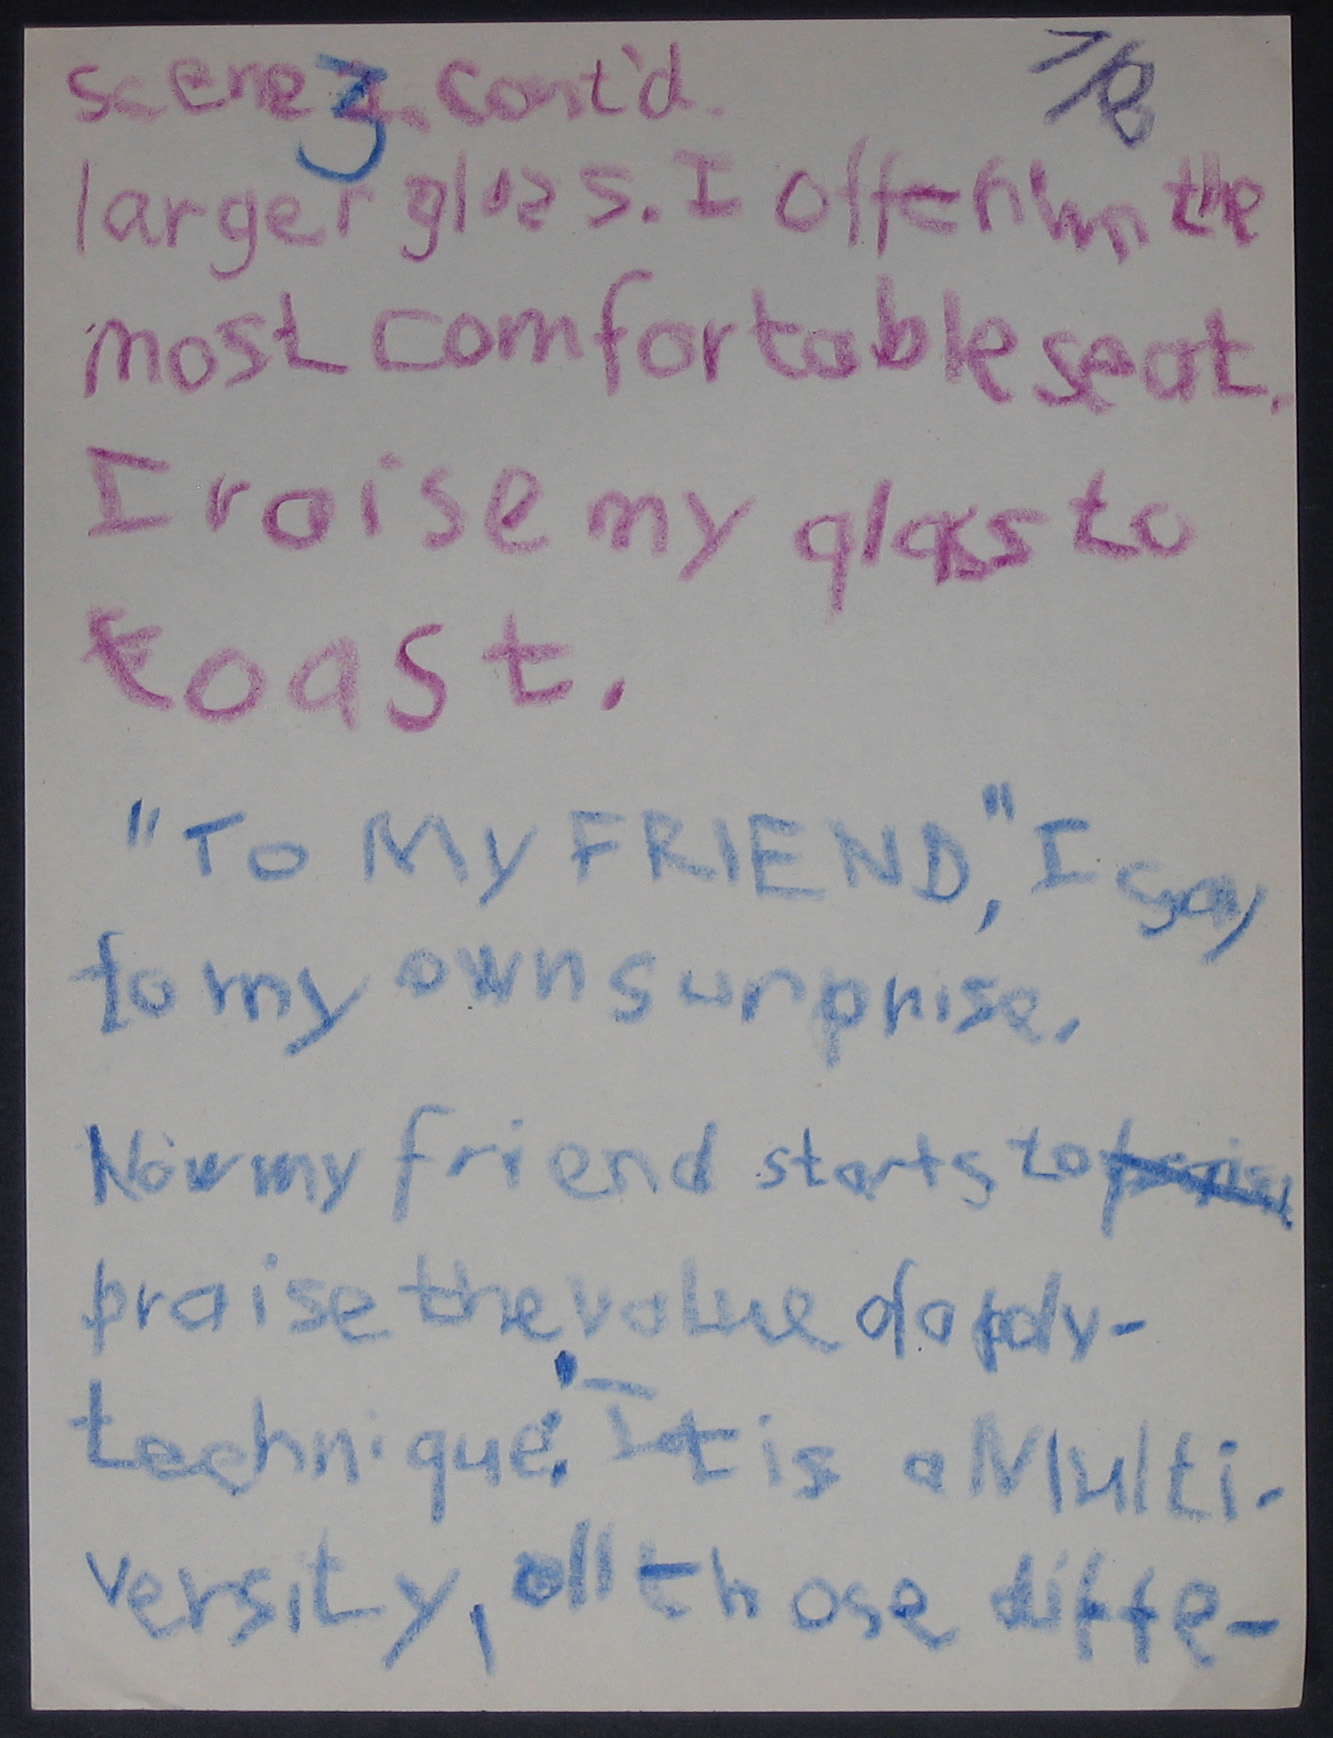 scene 3. cont'd. 7/8
larger glass. I offer him the
most comfortable seat.
I raise my glass to
toast.
"To My FRIEND," I say
to my own surprise.
Now my friend starts to
praise the value of a poly-
technique. It is a Multi-
versity, all those diffe-